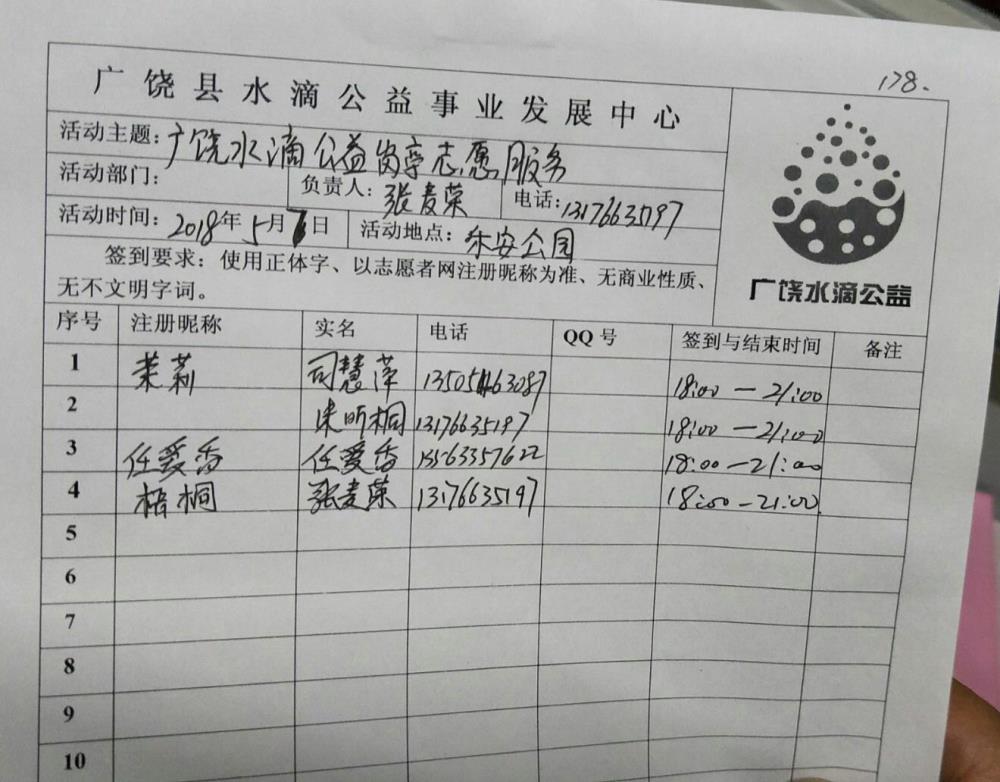 178.
广饶县水滴公益事业发展中心
活动主题：广饶水滴公益岗亭志愿服务
活动部门： 负责人：张麦荣 电话：13176635197
活动时间：2018年5月7日 活动地点：乐安公园
签到要求：使用正体字、以志愿者网注册昵称为准、无商业性质、
无不文明字词。
广饶水滴公益
序号 注册昵称 实名 电话 QQ号 签到与结束时间 备注
1 茉莉 司慧萍 13505463087 18:00—21:00
2 昕桐 13176635197 18:00—21:00
3 任爱香 任爱香 15563357622 18:00—21:00
4 梧桐 张麦荣 13176635197 18:00—21:00
5
6
7
8
9
10